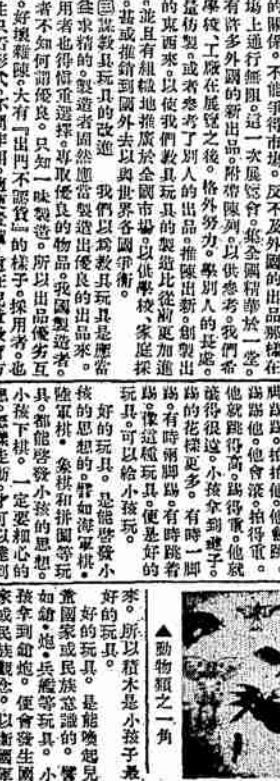 的關係。不能獲得市場。反不及外國的出品那樣在
場上通行無阻。這一次展覽會。集全國精華於一堂。
有許多外國的新出品。附帶陳列。以供參考。我們希
學校、工廠在展覽之後。格外努力。學別人的長處。
量仿製。或者參考了別人的出品。推陳出新。創製出
的東西來。以使我們教具玩具的製造比從前更加進
。並且有組織地推廣於全國市場。以供學校、家庭採
。甚或推銷到國外去。以與世界各國爭衡。
㈢謀教具玩具的改進　我們以為教具玩具是應當
益求精的。製造者固然應當製造出優良的出品來。
用者也得慎重選擇。專取優良的物品。我國製造者。
者不知何謂優良。只知一味製造。所以出品優劣互
。好壞雜陳。大有『出門不認貨』的樣子。採用者。也
踢他。他會滾。拍得重。
他就跳得高。踢得重。他就
滾得很遠。小孩拿到毽子。
踢的花樣更多。有時一脚
踢。有時兩脚踢。有時跳着
踢。像這種玩具。便是好的
玩具。可以給小孩玩。
好的玩具。是能啓發小
孩的思想的。譬如海軍棋。
陸軍棋。象棋和拼圖等玩
具。都能啓發小孩的思想。
小孩下棋。一定要細心的
▲動物類之一角
來。所以積木是小孩子最
好的玩具。
好的玩具。是能喚起兒
童國家或民族意識的。譬
如鎗。炮。兵艦等玩具。小
孩拿到鎗炮。便會發生國
家或民族觀念。以